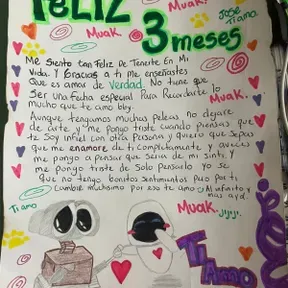 FELIZ
MUAK.
JOSE
TIAMO
3 meses
MUAK.
Me siento tan Feliz De Tenerte En Mi
Vida. Y Gracias a Ti me enseñastes
Que es amor de Verdad No tiene que
Ser una Fecha especial Para Recordarte lo
mucho que te amo bby.
MUAK.
Aunque tengamos muchas peleas no dejare
de amarte y me pongo triste cuando piensas que
te soy infiel con otra Persona y quiero que sepas
que me enamore de ti Completamente y aveces
me pongo a pensar que seria de mi sin ti, y
me pongo triste de Solo pensarlo yo se
que no tengo bonitos Sentimientos pero por ti
Cambie muchisimo por eso te amo Al infinito y
mas aya.
Ti amo
MUAK.
TI AMO